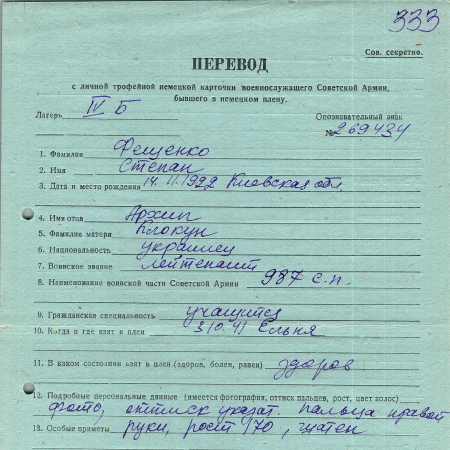 333
Сов. секретно.
ПЕРЕВОД
с личной трофейной немецкой карточки военнослужащего Советской Армии,
бывшего в немецком плену.
Лагерь IV Б Опознавательный знак
№ 269434
1. Фамилия Фещенко
2. Имя Степан
3. Дата и место рождения 14.11.1922 Киевская обл.
4. Имя отца Архип
5. Фамилия матери Клокун
6. Национальность украинец
7. Воинское звание лейтенант
8. Наименование воинской части Советской Армии 987 с.п.
9. Гражданская специальность учащийся
10. Когда и где взят в плен 3/10.41 Ельня
11. В каком состоянии взят в плен (здоров, болен, ранен) здоров
12. Подробные персональные данные (имеется фотография, оттиск пальцев, рост, цвет волос)
фото, оттиск указат. пальца правой
13. Особые приметы руки, рост 170, шатен